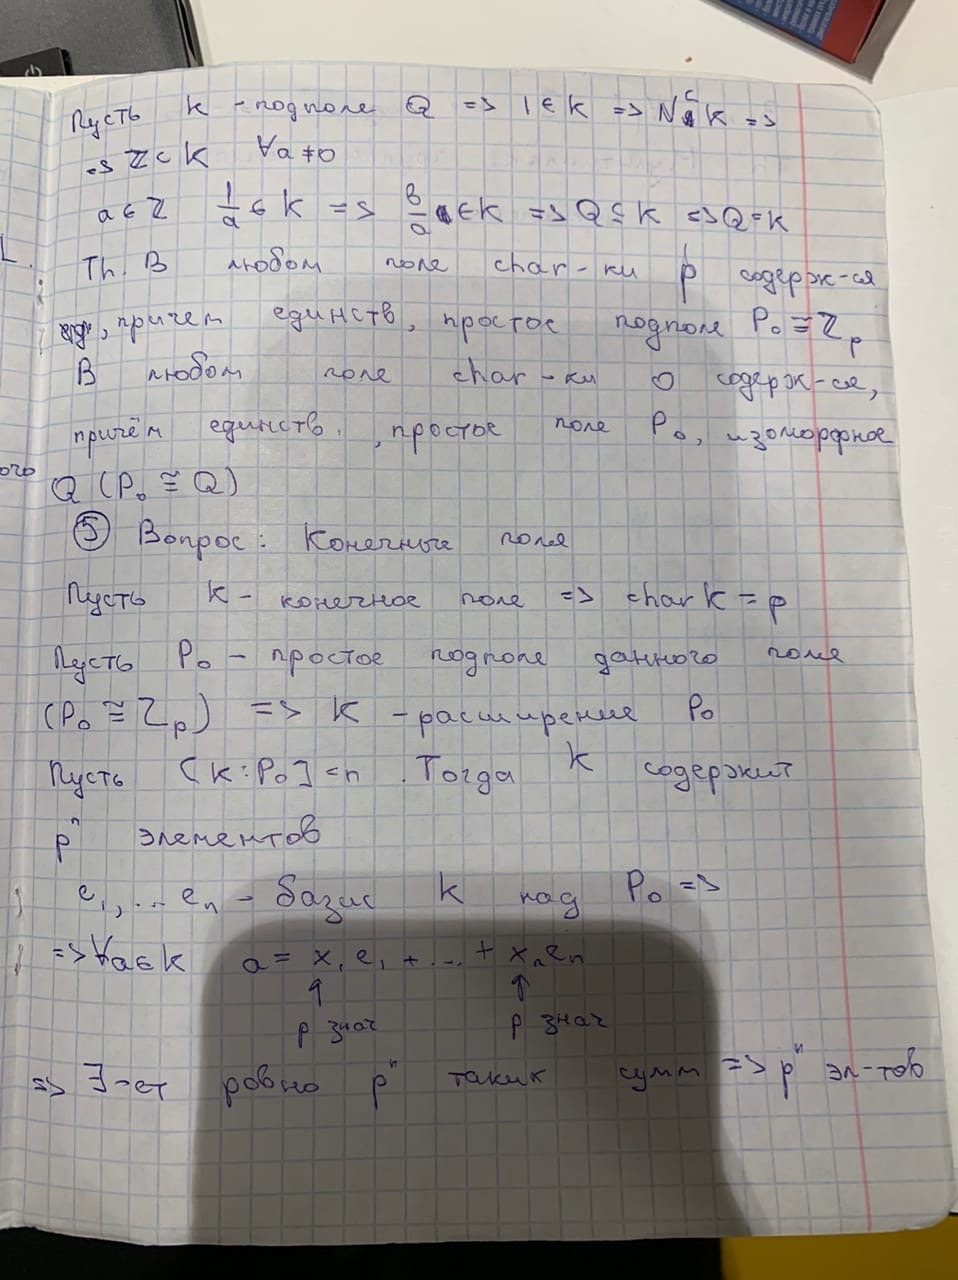 Пусть K - подполе Q => 1 ∈ K => N ⊂ K =>
=> Z ⊂ K ∀a ≠ 0
a ∈ Z 1/a ∈ K => b/a ∈ K => Q ⊆ K => Q = K
Th. В любом поле char-ки p содерж-ся
, причем единств, простое подполе P₀ ≅ Zₚ
В любом поле char-ки 0 содерж-ся,
причём единств. , простое поле P₀, изоморфное
Q (P₀ ≅ Q)
⑤ Вопрос: Конечные поля
Пусть K - конечное поле => char K = p
Пусть P₀ - простое подполе данного поля
(P₀ ≅ Zₚ) => K - расширение P₀
Пусть [K : P₀] = n . Тогда K содержит
pⁿ элементов
e₁, ... eₙ - базис K над P₀ =>
=> ∀a ∈ K a = x₁e₁ + ... + xₙeₙ
↑ ↑
p знач p знач
=> ∃-ет ровно pⁿ таких сумм => pⁿ эл-тов